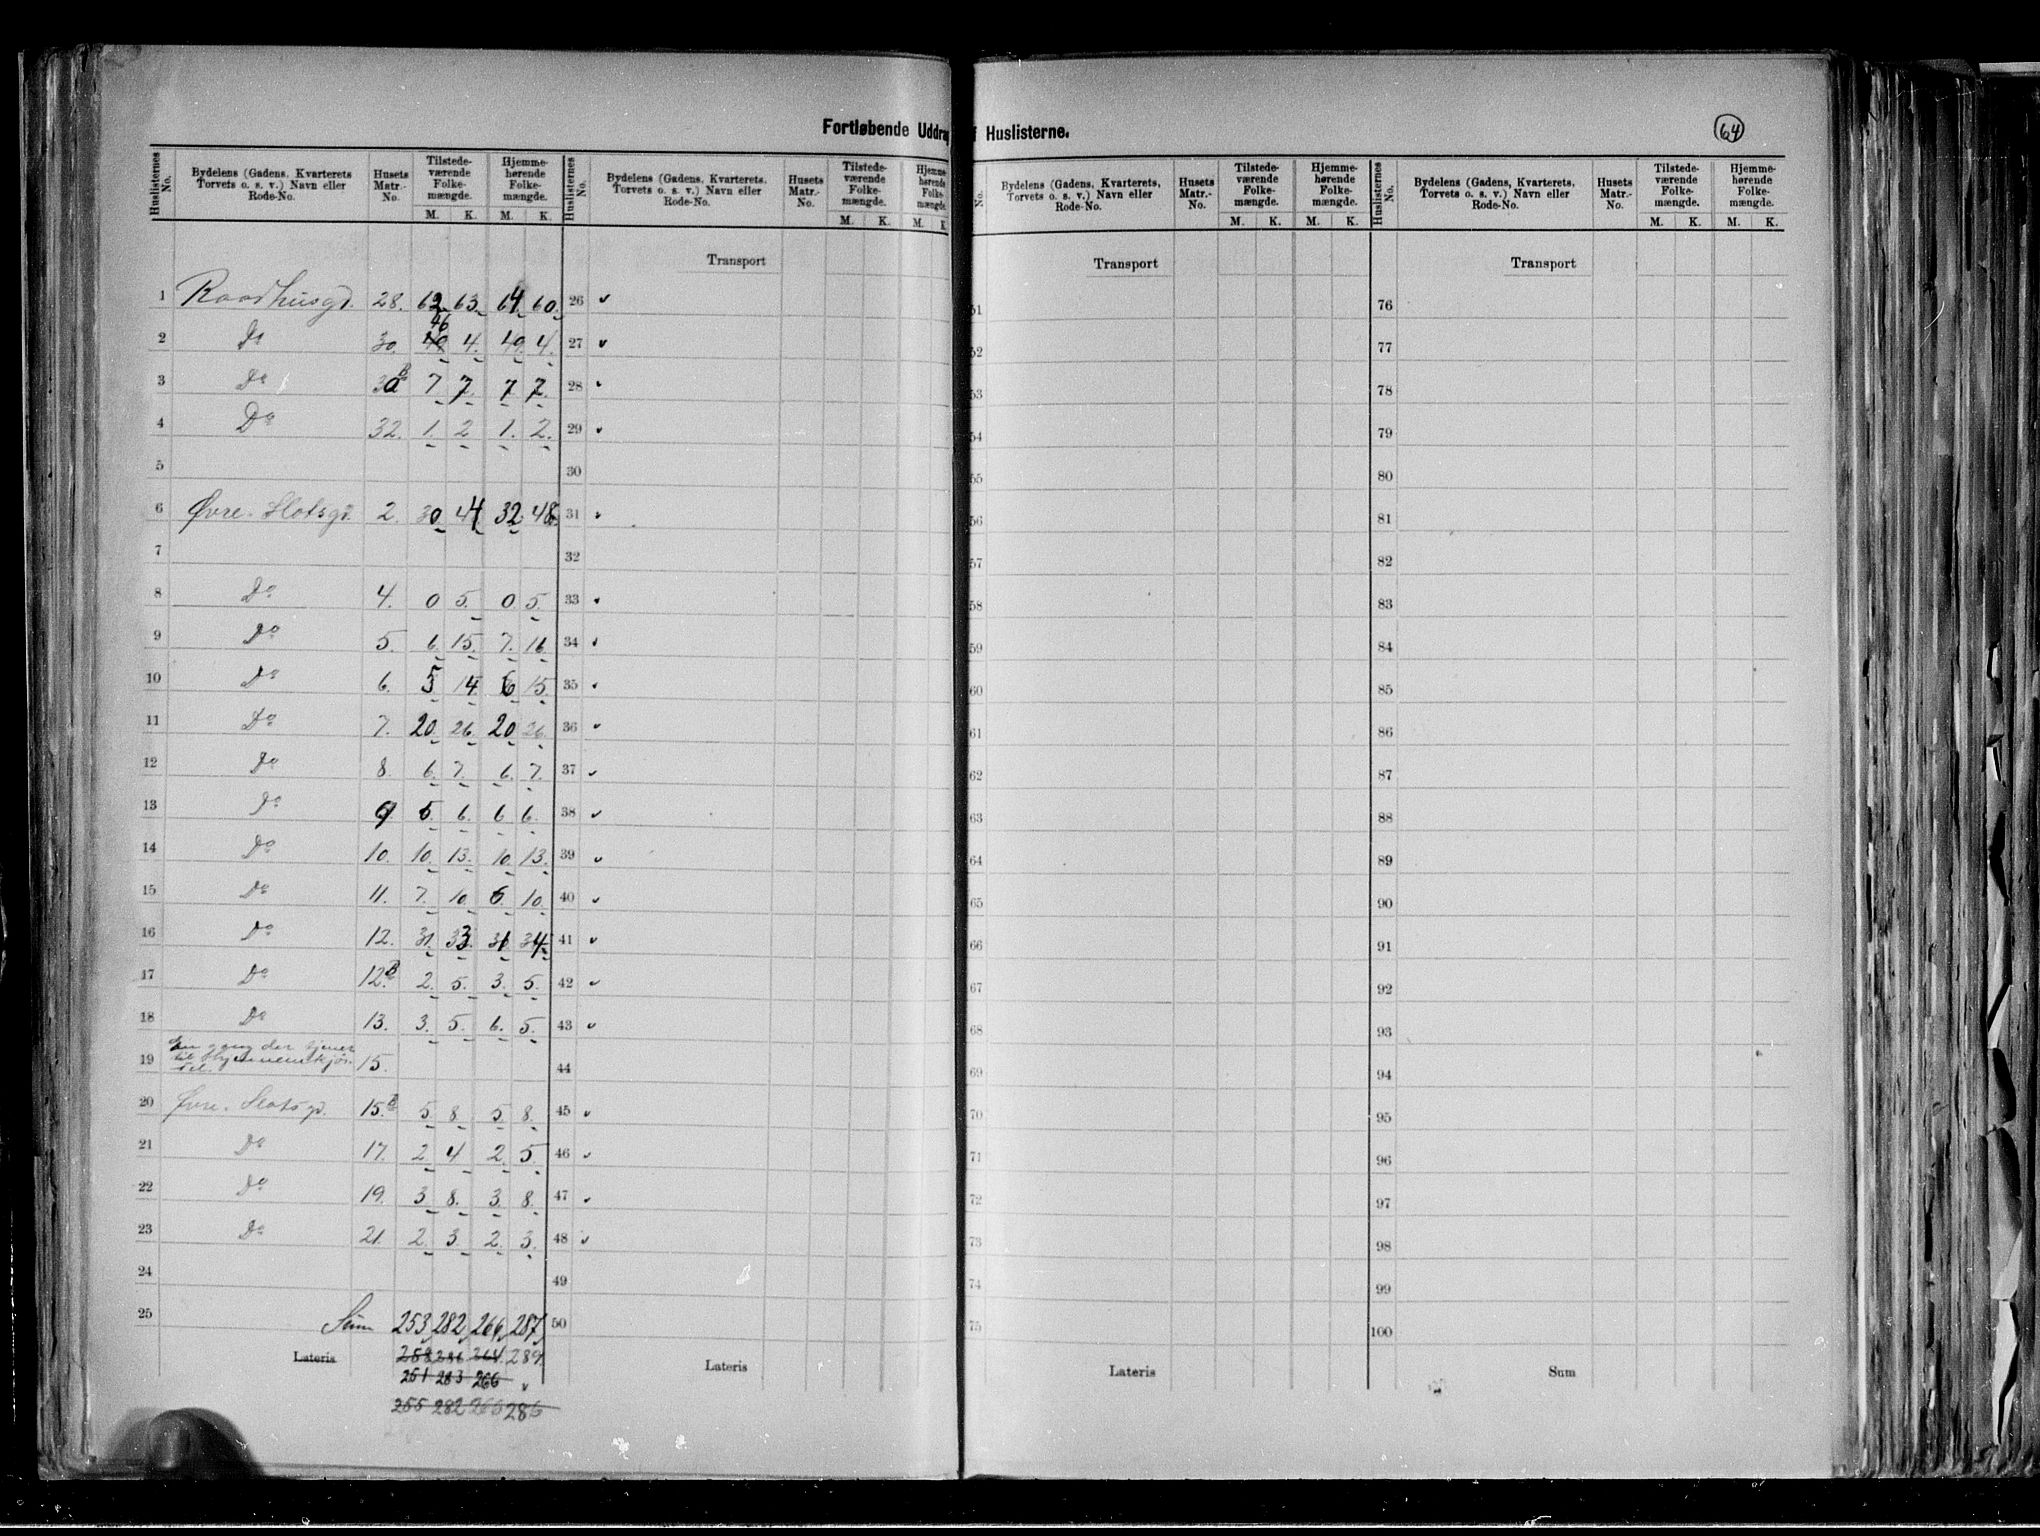 Fortløbende Uddrag af Huslisterne.
64
Huslisternes No. | Bydelens (Gadens, Kvarterets Torvets o. s. v.) Navn eller Rode-No. | Husets Matr.-No. | Tilstedeværende Folkemængde. M. K. | Hjemmehørende Folkemængde. M. K.
1 Raadhusgd. 28. 62 63. 64. 60.
2 Do 30. 46 4. 49. 4.
3 Do 30B 7 7. 7 7.
4 Do 32. 1. 2 1. 2.
5
6 Øvre. Slotsgd. 2. 30 44 32. 48.
7
8 Do 4. 0 5. 0 5.
9 Do 5. 6. 15. 7. 16
10 Do 6. 5 14 6 15.
11 Do 7. 20. 26. 20. 26.
12 Do 8. 6. 7. 6. 7.
13 Do 9 5. 6. 6 6.
14 Do 10. 10. 13. 10. 13.
15 Do 11. 7. 10. 6. 10.
16 Do 12. 31. 33. 31 34.
17 Do 12.B 2. 5. 3. 5.
18 Do 13. 3. 5. 6. 5.
19 En gang der tjener til 15.
20 Øvre. Slotsgd. 15.B 5. 8. 5 8.
21 Do 17. 2. 4 2. 5.
22 Do 19. 3 8. 3. 8.
23 Do 21. 2. 3. 2. 3.
24
25 Sum 253 282 266 287
Lateris 258 286 264 289
251 283 266
255 282 266 286
Huslisternes No. | Bydelens (Gadens, Kvarterets, Torvets o. s. v.) Navn eller Rode-No. | Husets Matr.-No. | Tilstedeværende Folkemængde. M. K. | Hjemmehørende Folkemængde. M. K.
Transport
26
27
28
29
30
31
32
33
34
35
36
37
38
39
40
41
42
43
44
45
46
47
48
49
50
Lateris
No. | Bydelens (Gadens, Kvarterets, Torvets o. s. v.) Navn eller Rode-No. | Husets Matr.-No. | Tilstedeværende Folkemængde. M. K. | Hjemmehørende Folkemængde. M. K.
Transport
51
52
53
54
55
56
57
58
59
60
61
62
63
64
65
66
67
68
69
70
71
72
73
74
75
Lateris
Huslisternes No. | Bydelens (Gadens, Kvarterets, Torvets o. s. v.) Navn eller Rode-No. | Husets Matr.-No. | Tilstedeværende Folkemængde. M. K. | Hjemmehørende Folkemængde. M. K.
Transport
76
77
78
79
80
81
82
83
84
85
86
87
88
89
90
91
92
93
94
95
96
97
98
99
100
Sum